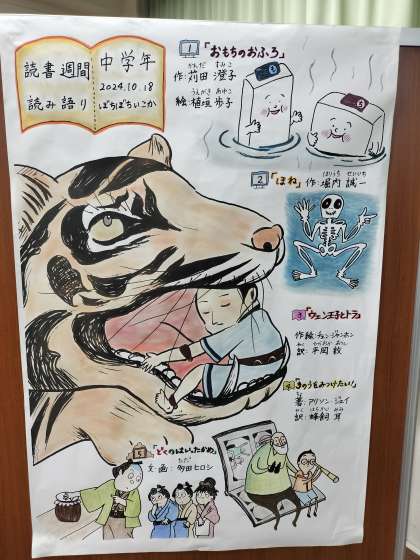 読書週間
読み語り
中学年
2024.10.18
ぼちぼちいこか
1 「おもちのおふろ」
かんだ すみこ
作:苅田 澄子
うえがき あゆこ
絵:植垣 歩子
2 「ほね」 作:堀内 誠一
ほりうち せいいち
3 「ウェン王子とトラ」
作・絵:チェン・ジャンホン
やく ひらおか あつし
訳:平岡 敦
4 「きのうをみつけたい!」
著:アリソン・ジェイ
やく はちかい みみ
訳:蜂飼 耳
5 「どくのはいったかめ」
ただ
文・画:多田ヒロシ